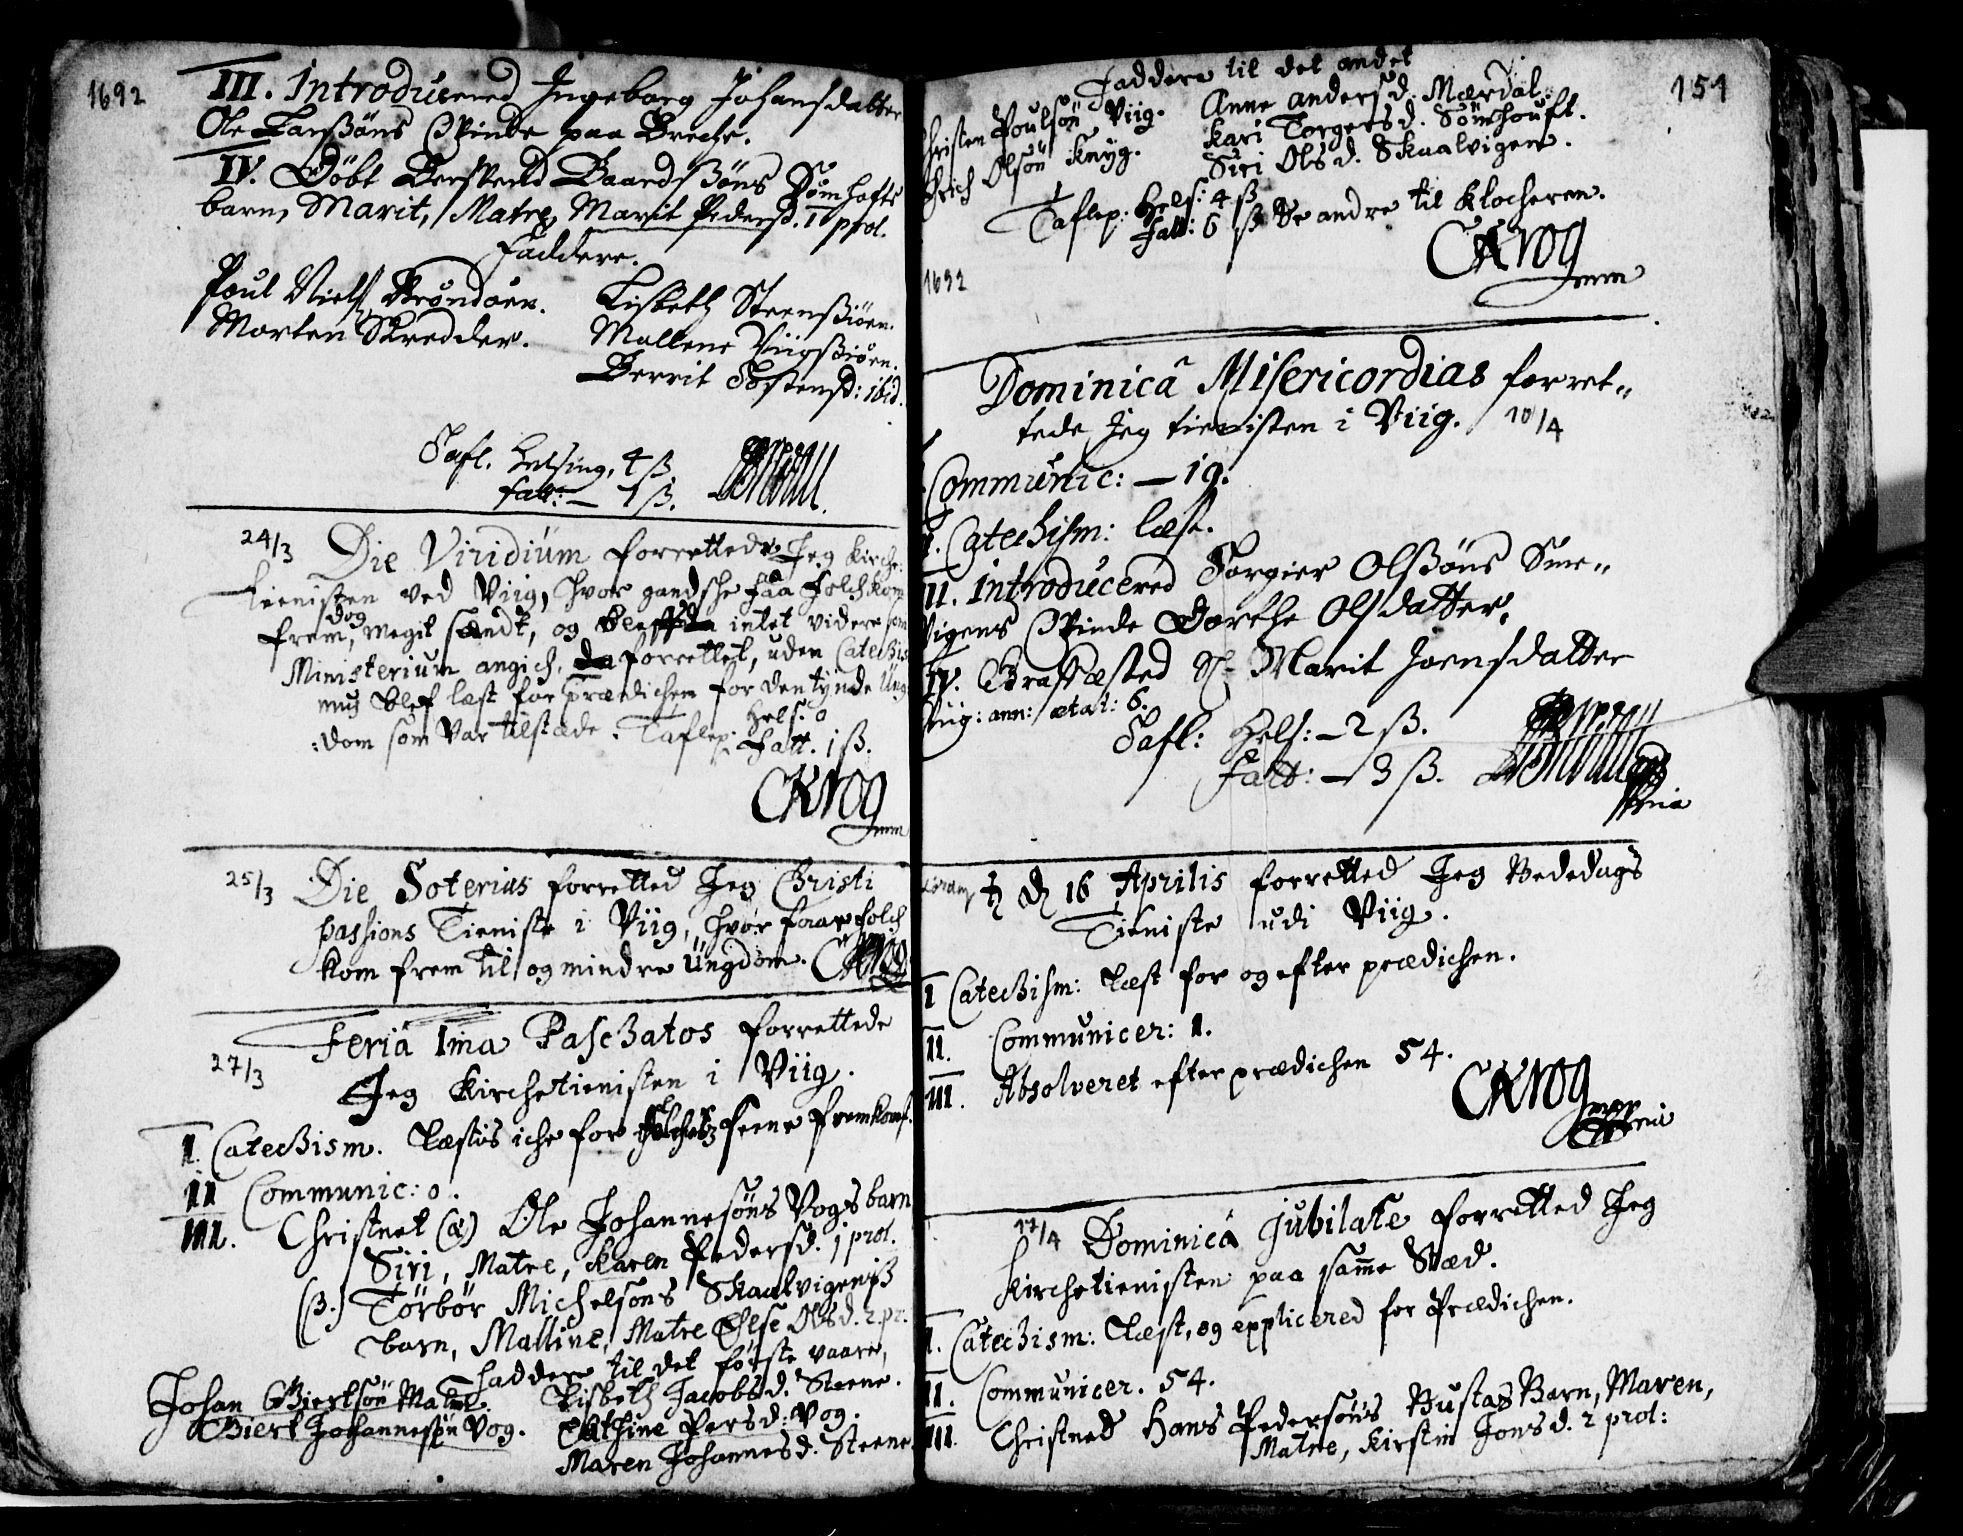 1692
III. Introducered Ingeborg Johansdatter
Ole Larßøns Qvinde paa
IV. Døbt Baardßøns Sømhofts
barn, Marit, Matre, Marit Pedersd. 1 prol.
Faddere.
Poul Niels Brøndøen. Lisbeth Steensiøen.
Morten Skredder. Mallene Viigsiøen.
Berrit Tostensd: ibid.
Tafl. Helsing, 4 ß.
fatt: — 1 ß.
24/3 Die Viridium forrettede Jeg Kirche-
tienisten ved Viig, hvor gandsche faa folch kom
frem, dog megit sendt, og intet videre som
Ministerium angich, forrettet, uden Catechis
mus blef læst for prædichen for den tynde Ung
:dom som var tilstæde. Taflep. Hels: 0
Fatt. 1 ß.
CKrog
mm
25/3 Die Soterius forretted Jeg Christi
passions Tieniste i Viig, hvor faar folch
kom frem til og mindre Ungdom.
27/3 Feria Ima Paschatos forrettede
Jeg Kirchetienisten i Viig.
I. Catechism. Læstis iche for folchetz seene fremkomst.
II Communic: 0.
III. Christnet (α) Ole Johannesøns Vogs barn
Siri, Matre, Karen Pedersd. 1 prol.
(β.) Törbör Michelsøns Skaalvigens
barn, Malline, Matre Else Olsd. 2. pr:
Faddere til det første vaare,
Johan Giertsøn Lisbeth Jacobsd. Steene.
Giert Johannesøn Vog. Cathine Persd: Vog.
Maren Johannesd. Steene
151
Faddere til det andet
Christen Poulsøn Viig. Anne Andersd. Mærdal.
Erich Olsøn Knyg. Kari Torgersd. Sömhouft.
Siri Olsd. Skaalvigen.
Taflep: Hels: 4 ß
Fatt: 6 ß De andre til Klocheren.
CKrog
mm
1692
Dominica Misericordias forret-
tede Jeg tienisten i Viig. 10/4
Communic: — 19.
I. Catechism: læst.
II. Introducered Torgier Olßøns Sme-
vigens Qvinde Dorthe Olsdatter.
IV. Grafæsted Marit Joensdatter
Viig: ann: ætat: 6.
Tafl: Hels: — 2 ß.
Fatt: — 3 ß.
Lørdag ♄ D 16 Aprilis forretted Jeg Bededags
Tieniste udi Viig.
I Catechism: Læst for og efter prædichen.
II. Communicer: 1.
III. Absolveret efter prædichen 54.
CKrog
17/4 Dominica Jubilate forretted Jeg
Kirchetienisten paa samme Stæd.
I. Catechism: Læst, og explicered for Prædichen.
II. Communicer. 54.
III. Christned Hans Pedersøns Bustas Barn, Maren,
Matre, Kirstin Jonsd. 2 prol: